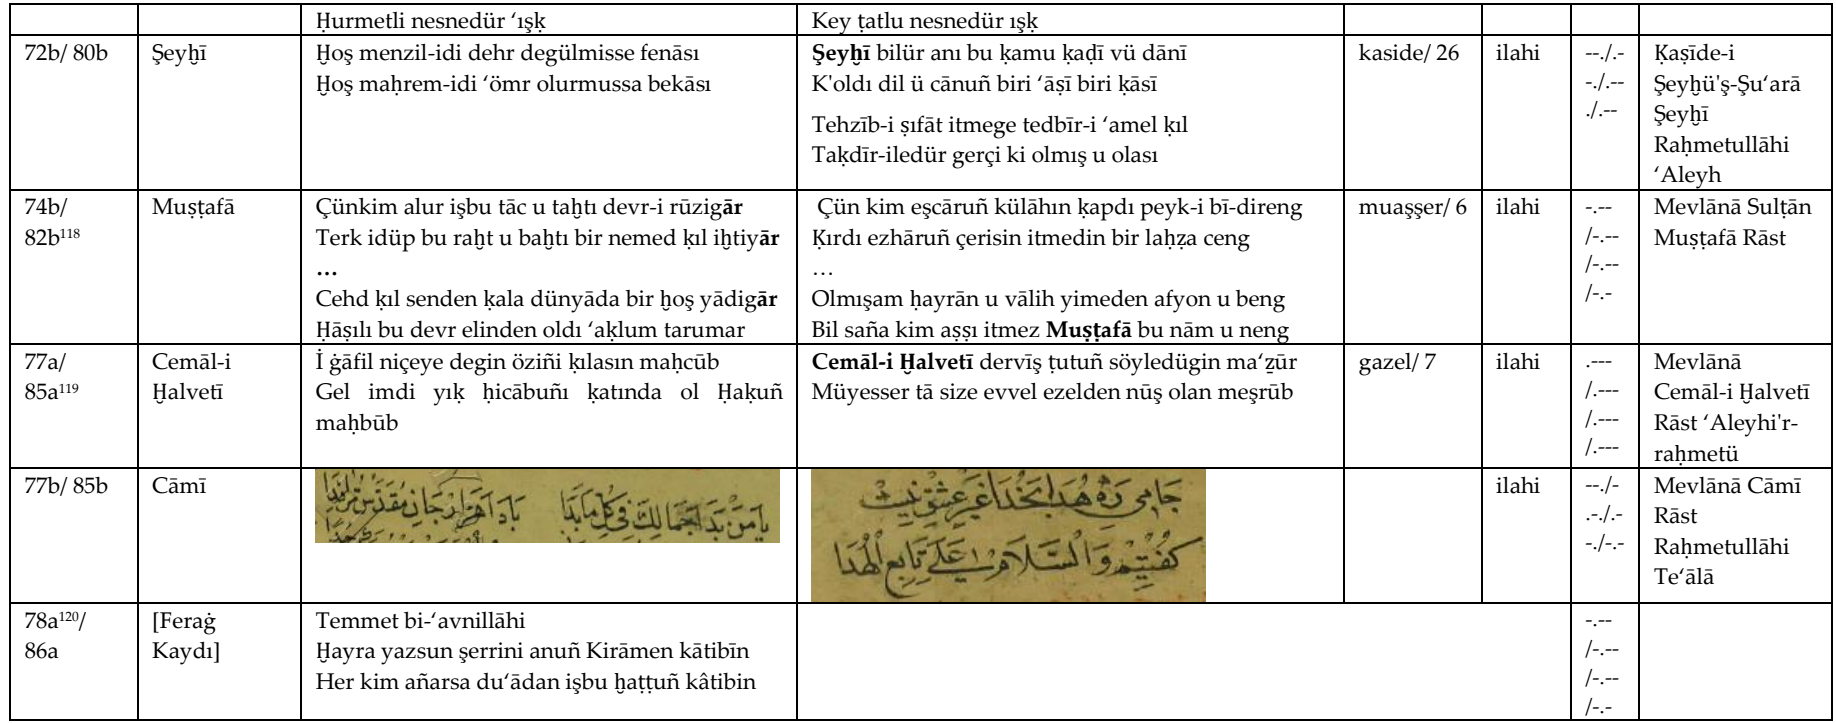 Ḥurmetli nesnedür ‘ışḳ
Key ṭatlu nesnedür ışḳ
72b/ 80b
Şeyḫī
Ḫoş menzil-idi dehr degülmisse fenāsı
Ḫoş maḥrem-idi ‘ömr olurmussa bekāsı
Şeyḫī bilür anı bu ḳamu ḳaḍī vü dānī
K'oldı dil ü cānuñ biri ‘āṣī biri ḳāsī
Tehzīb-i ṣıfāt itmege tedbīr-i ‘amel ḳıl
Taḳdīr-iledür gerçi ki olmış u olası
kaside/ 26
ilahi
--./.-
-./.--
./.--
Ḳaṣīde-i
Şeyḫü'ş-Şu‘arā
Şeyḫī
Raḥmetullāhi
‘Aleyh
74b/
82b118
Muṣṭafā
Çünkim alur işbu tāc u taḫtı devr-i rūzigār
Terk idüp bu raḫt u baḫtı bir nemed ḳıl iḫtiyār
…
Cehd ḳıl senden ḳala dünyāda bir ḫoş yādigār
Ḥāṣılı bu devr elinden oldı ‘aḳlum tarumar
Çün kim eşcāruñ külāhın ḳapdı peyk-i bī-direng
Ḳırdı ezhāruñ çerisin itmedin bir laḥẓa ceng
…
Olmışam ḥayrān u vālih yimeden afyon u beng
Bil saña kim aṣṣı itmez Muṣṭafā bu nām u neng
muaşşer/ 6
ilahi
-.--
/-.--
/-.--
/-.-
Mevlānā Sulṭān
Muṣṭafā Rāst
77a/
85a119
Cemāl-i
Ḫalvetī
İ ġāfil niçeye degin öziñi ḳılasın maḥcūb
Gel imdi yıḳ ḥicābuñı ḳatında ol Ḥaḳuñ
maḥbūb
Cemāl-i Ḫalvetī dervīş ṭutuñ söyledügin ma‘ẕūr
Müyesser tā size evvel ezelden nūş olan meşrūb
gazel/ 7
ilahi
.---
/.---
/.---
/.---
Mevlānā
Cemāl-i Ḫalvetī
Rāst ‘Aleyhi'r-
raḥmetü
77b/ 85b
Cāmī
يا من بدا جمالك في كل ما بدا بادا هزار جان مقدس ترا فدا
جامی ره هدا بخدا غیر عشق نیست
کفتیم و السلام علی تابع الهدا
ilahi
--./-
.-./.-
-./-.-
Mevlānā Cāmī
Rāst
Raḥmetullāhi
Te‘ālā
78a120/
86a
[Feraġ
Kaydı]
Temmet bi-‘avnillāhi
Ḫayra yazsun şerrini anuñ Kirāmen kātibīn
Her kim añarsa du‘ādan işbu ḫaṭṭuñ kâtibin
-.--
/-.--
/-.--
/-.-